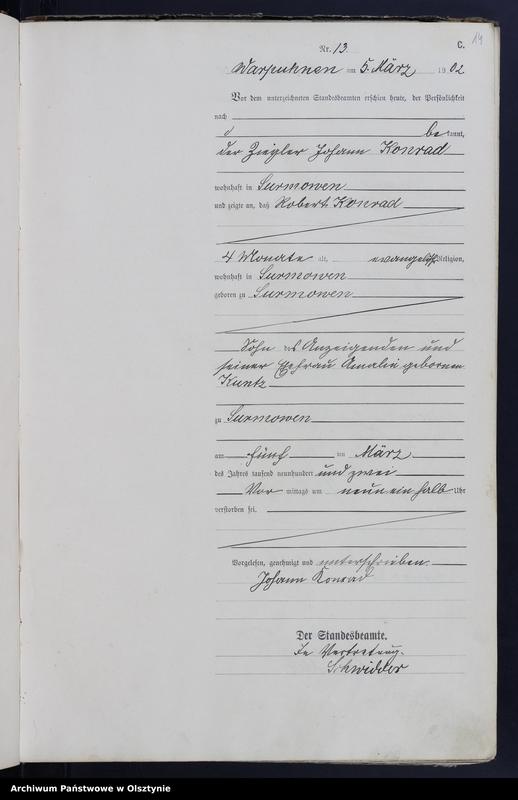 14
Nr. 13.
C.
Warpuhnen am 5. März 1902
Vor dem unterzeichneten Standesbeamten erschien heute, der Persönlichkeit
nach
be kannt,
der Ziegler Johann Konrad
wohnhaft in Surmowen
und zeigte an, daß Robert Konrad
4 Monate alt, evangelisch Religion,
wohnhaft in Surmowen
geboren zu Surmowen
Sohn des Anzeigenden und
seiner Ehefrau Amalie gebornen
Kuntz
zu Surmowen
am fünf ten März
des Jahres tausend neunhundert und zwei
Vor mittags um neun ein halb Uhr
verstorben sei.
Vorgelesen, genehmigt und unterschrieben.
Johann Konrad
Der Standesbeamte.
In Vertretung.
Schwidder
Archiwum Państwowe w Olsztynie